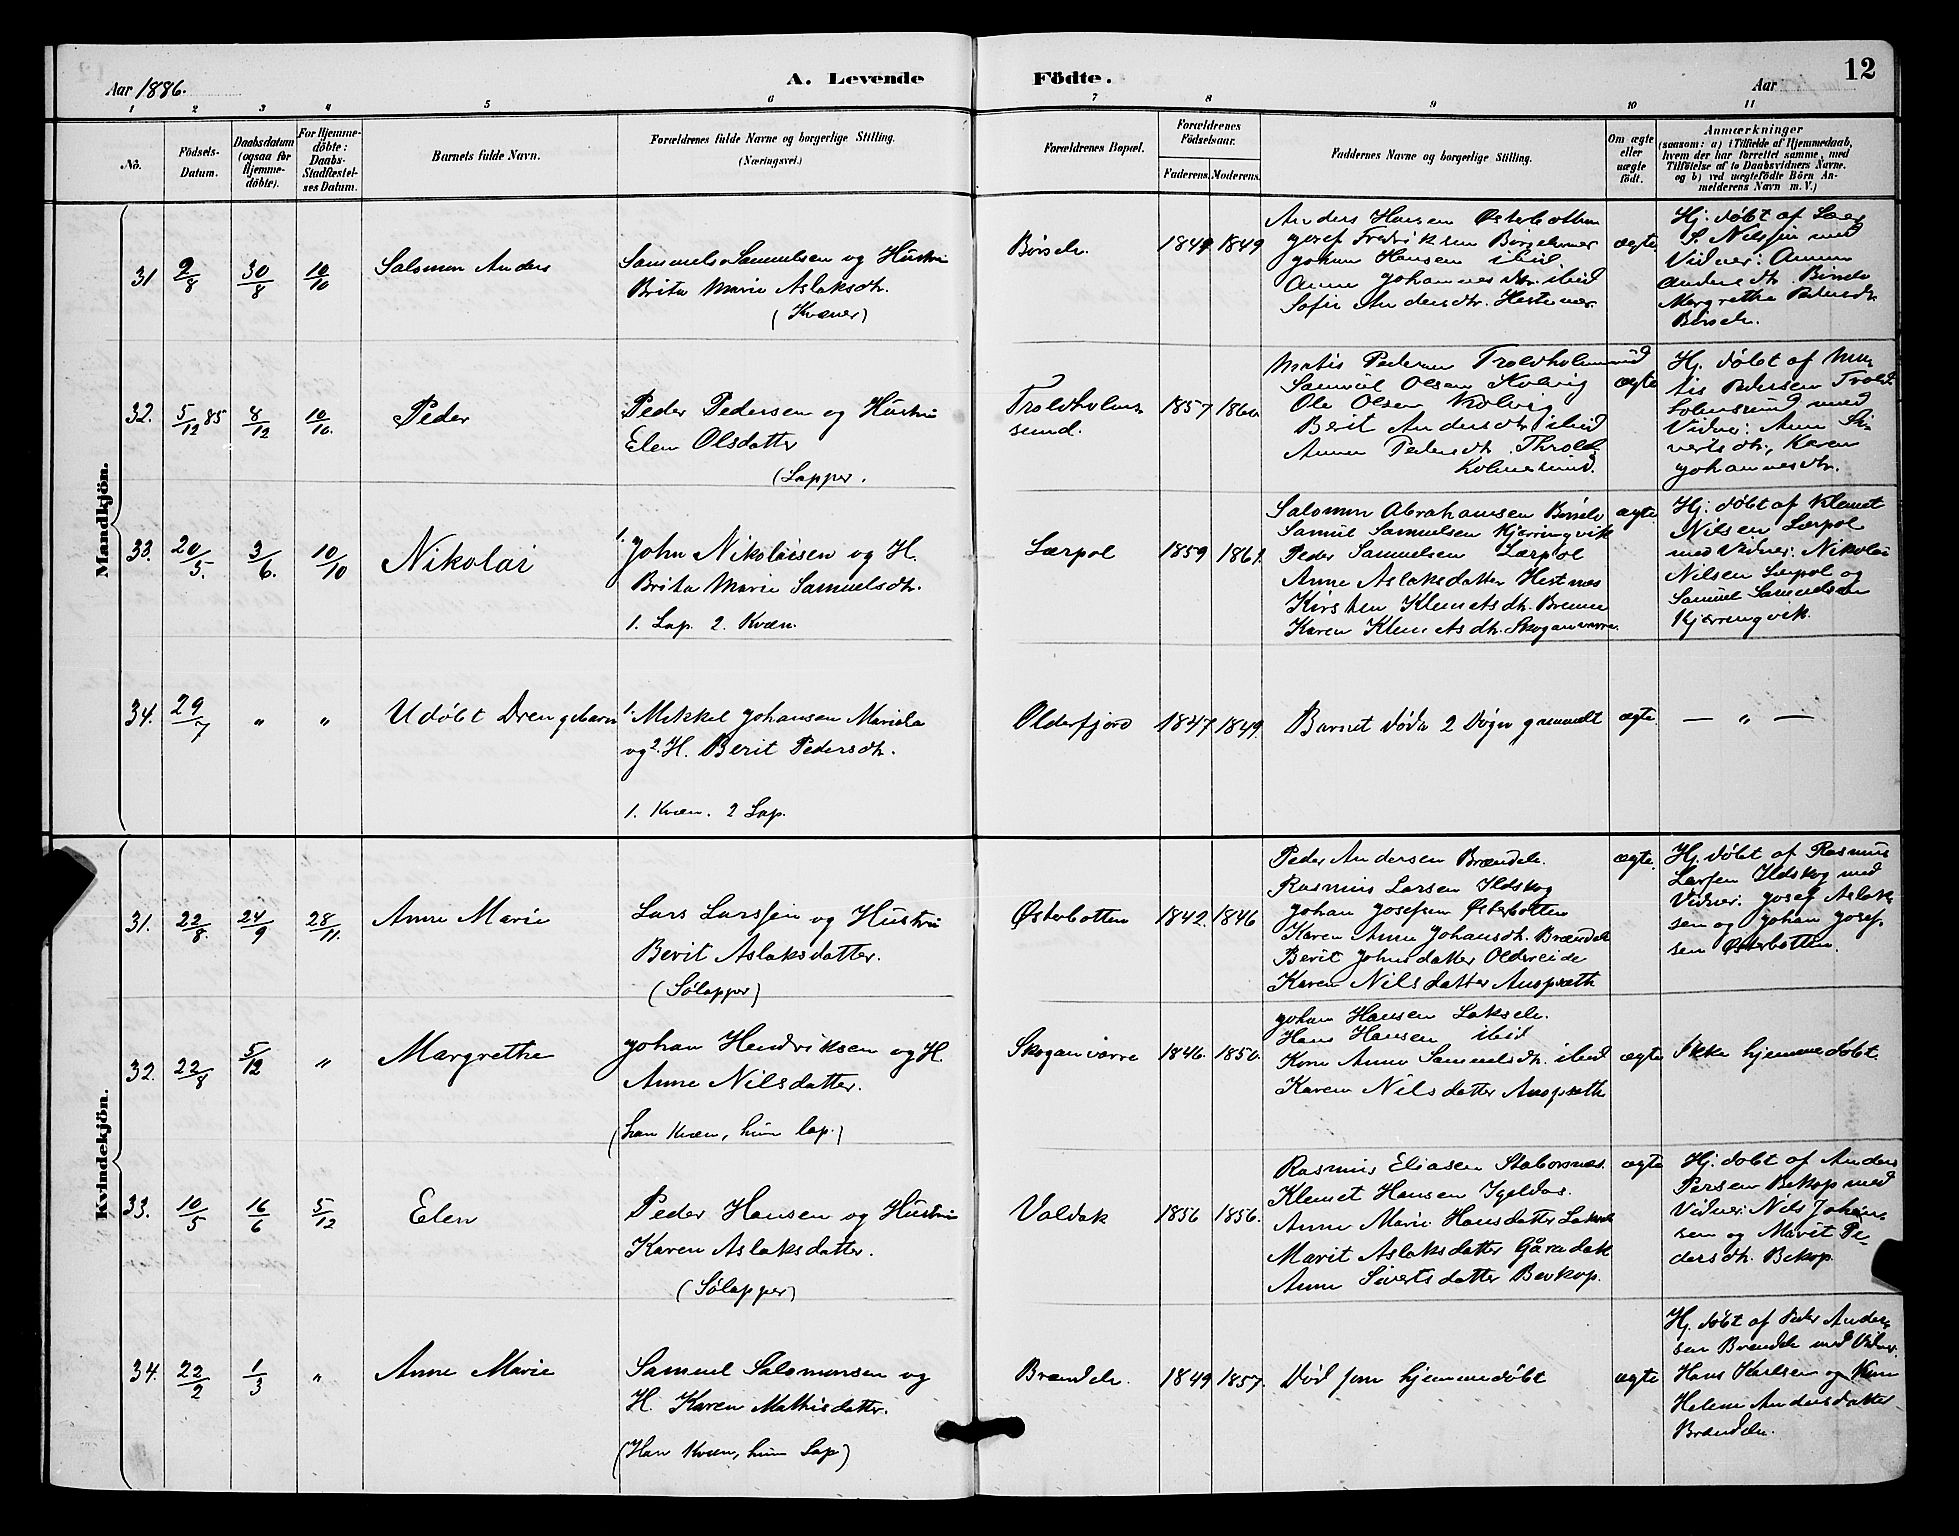 Aar 1886.
A. Levende Födte.
Aar
12
1 2 3 4 5 6 7 8 9 10 11
No.
Födsels-
Datum.
Daabsdatum
(ogsaa for
Hjemme-
döbte).
For Hjemme-
döbte:
Daabs-
Stadfæstel-
ses Datum.
Barnets fulde Navn.
Forældrenes fulde Navne og borgerlige Stilling.
(Næringsvei.)
Forældrenes Bopæl.
Forældrenes
Födselsaar.
Faderens. Moderens.
Faddernes Navne og borgerlige Stilling.
Om ægte
eller
uægte
födt.
Anmærkninger
(saasom: a) i Tilfælde af Hjemmedaab,
hvem der har forrettet samme, med
Tilföielse af to Daabsvidners Navne.
og b) ved uægtefödte Börn An-
melderens Navn m. V.)
Mandkjön.
31 2/8 30/8 10/10 Salomon Anders
Sammel Sammelsen og Hustru
Brita Marie Aslaksdtr.
(Kvæner)
Børsele. 1849 1849
Anders Hansen Østerbotten
Josef Fredriksen Børselvnes
Johan Hansen ibid
Anne Johannesdtr. ibid
Sofie Andersdtr. Hestnes.
ægte
Hj. døbt af Lars
S. Nilssen med
Vidner: Anna
Andersdtr. Børselv
Margrethe Pedersdtr
Børselv.
32. 5/12 85 8/12 10/10. Peder
Peder Pedersen og Hustru
Elen Olsdatter
(Lapper.
Troldholms-
sund. 1857 1860.
Matis Pedersen Troldholmsund
Samuel Olsen Kolvig
Ole Olsen Kolvig
Berit Andersdtr. ibid
Anne Pedersdtr. Throld-
holmesund.
ægte
Hj. døbt af Ma-
tis Pedersen Trold-
holmsund med
Vidner: Anne Si-
vertsdtr., Karen
Johannesdtr.
33. 20/5. 3/6. 10/10 Nikolai
1. John Nikolaisen og H.
Brita Marie Samuelsdtr.
1. Lap. 2. Kvæn.
Lærpol 1859 1861.
Salomon Abrahamsen Børselv
Samuel Samuelsen Kjærringvik
Peder Samuelsen Lærpol
Anne Aslaksdatter Hestnes
Kirsten Klemetsdtr. Brenne
Karen Klemetsdtr. Skoganvarre.
ægte
Hj. døbt af Klemet
Nilsen Lærpol
med Vidner: Nikolai
Nilsen Lærpol og
Samuel Samuelsen
Kjærringvik.
34. 29/7 " " Udøbt Drengebarn
1. Mikkel Johansen Mariela
og 2. H. Berit Pedersdtr.
1. Kvæn. 2 Lap.
Olderfjord 1847 1849.
Barnet døde 2 Døgn gammelt
ægte.
— " —
Kvindekjön.
31. 22/8. 24/9 28/11. Anne Marie
Lars Larssen og Hustru
Berit Aslaksdatter.
(Sølapper)
Østerbotten 1842. 1846
Peder Andersen Brændelv.
Rasmus Larsen Ildskog
Johan Josefsen Østerbotten
Karen Anne Johansdtr. Brændelv
Berit Johnsdatter Oldereide
Karen Nilsdatter Auopsæth
ægte.
Hj. døbt af Rasmus
Larsen Ildskog med
Vidner: Josef Aslak-
sen og Johan Josef-
sen Østerbotten.
32. 22/8 5/12 " Margrethe
Johan Hendriksen og H.
Anne Nilsdatter.
(han Kvæn, hun lap.)
Skoganvarre 1846. 1850.
Johan Hansen Lakselv.
Hans Hansen ibid
Kone Anne Samuelsdtr. ibid
Karen Nilsdatter Auopsæth
ægte
Ikke hjemmedøbt.
33. 10/5 16/6 5/12 Elen
Peder Hansen og Hustru
Karen Aslaksdatter.
(Sølapper)
Valdak 1856 1856.
Rasmus Eliasen Staborsnæs.
Klemet Hansen Igeldas.
Anne Marie Hansdatter Lakselv
Marit Aslaksdatter Gåradak
Anne Sivertsdatter Bevkop.
ægte
Hj. døbt af Anders
Persen Bekop med
Vidner: Nils Johan-
sen og Marit Pe-
dersdtr. Bekop.
34. 22/2 1/3 " Anne Marie
Samuel Salomonsen og
H. Karen Mathisdatter.
(Han Kvæn, hun Lap)
Brændelv. 1849 1857.
Død som hjemmedøbt
ægte
Hj. døbt af Peder Ander-
sen Brændelv med Vidner.
Hans Karlsen og Kone
Helene Andersdatter
Brændelv.